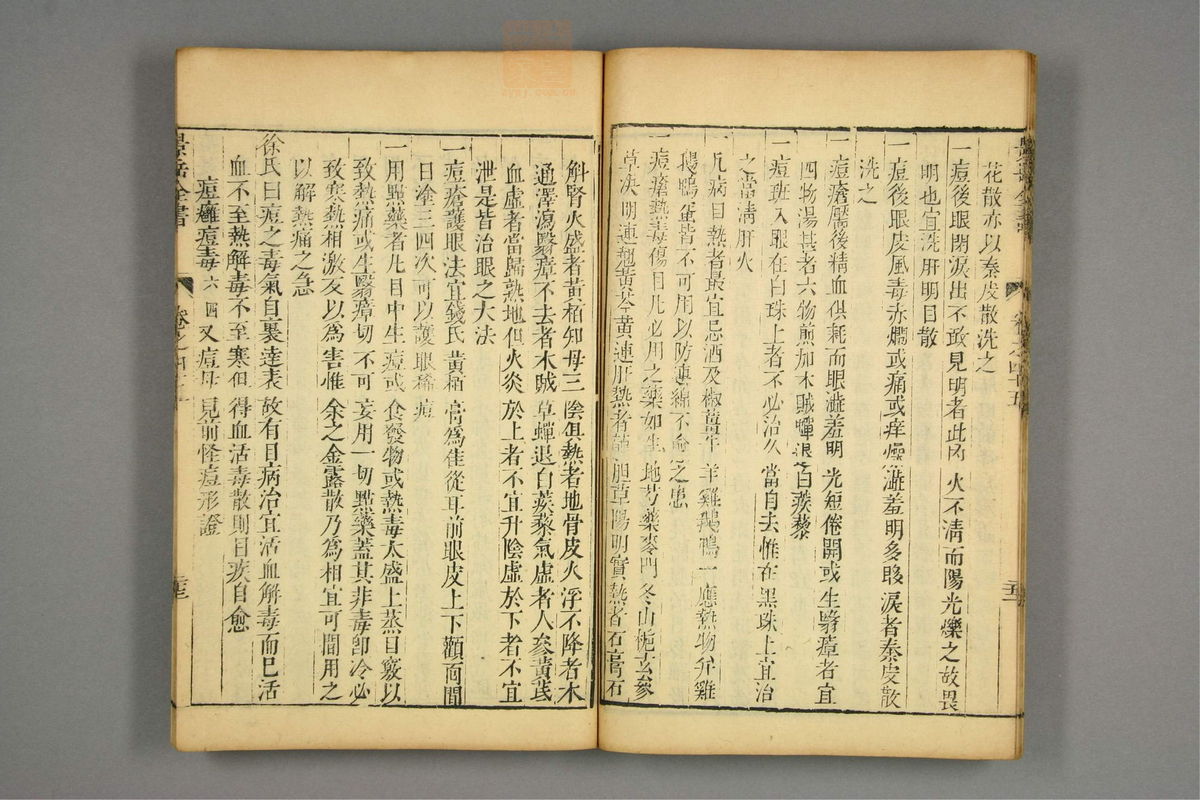 花散亦以秦皮散洗之
一痘後眼閉淚出不敢見明者此內火不淸而陽光爍之故畏
明也宜洗肝明目散
一痘後眼皮風毒赤爛或痛或痒㿋澁羞明多眵淚者秦皮散
洗之
一痘瘡靨後精血俱耗而眼澁羞明光短倦開或生翳瘴者宜
四物湯其者六物煎加木賊蟬退之白蒺藜
一痘班入眼在白珠上者不必治久當自去惟在黑珠上宜治
之當淸肝火
一凡病目熱者最宜忌酒及椒薑牛羊雞鵝鴨一應熱物并雞
鵝鴨蛋皆不可用以防連綿不愈之患
一痘瘡熱毒傷目凡必用之藥如生地芍藥麥門冬山梔玄參
草決明連翹黃芩黃連肝熱者龍胆草陽明實熱者石膏石
斛腎火盛者黃栢知母三陰俱熱者地骨皮火浮不降者木
通澤瀉翳瘴不去者木賊草蟬退白蒺藜氣虛者人參黃芪
血虛者當歸熟地但火炎於上者不宜升陰虛於下者不宜
泄是皆治眼之大法
一痘瘡護眼法宜錢氏黃栢膏爲佳從耳前眼皮上下顴面間
日塗三四次可以護眼稀痘
一用點藥者凡目中生痘或食發物或熱毒太盛上蒸目竅以
致熱痛或生翳瘴切不可妄用一切點藥蓋其非毒卽冷必
致寒熱相激反以爲害惟余之金露散乃爲相宜可間用之
以解熱痛之急
徐氏曰痘之毒氣自裏達表故有目病治宜活血解毒而已活
血不至熱解毒不至寒但得血活毒散則目疾自愈
痘癰痘毒六四又痘母見前怪痘形證